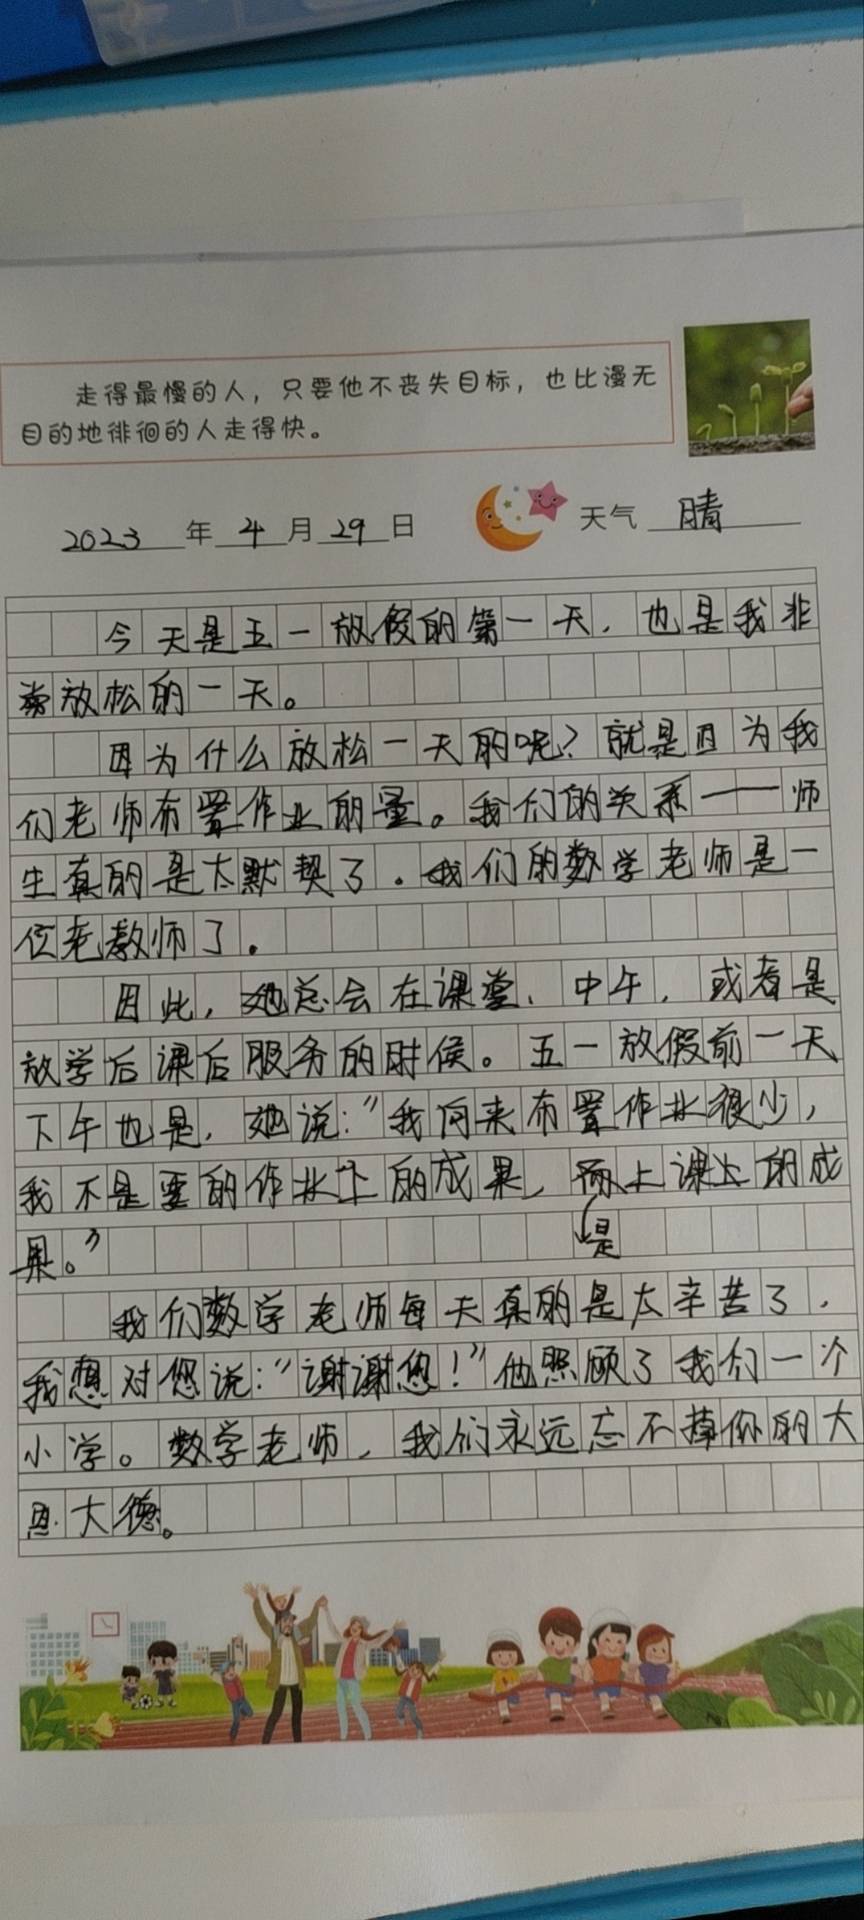 走得最慢的人，只要他不丧失目标，也比漫无
目的地徘徊的人走得快。
2023年4月29日 天气 晴
今天是五一放假的第一天，也是我非
常放松的一天。
因为什么放松一天的呢？就是因为我
们老师布置作业的量。我们的关系——师
生真的是太默契了。我们的数学老师是一
位老教师了。
因此，她总会在课堂、中午，或者是
放学后课后服务的时候。五一放假前一天
下午也是，她说：“我向来布置作业很少，
我不是要的作业上的成果，而上课上的成
果。”
是
我们数学老师每天真的是太辛苦了，
我想对您说：“谢谢您！”他照顾了我们一个
小学。数学老师，我们永远忘不掉你的大
恩大德。